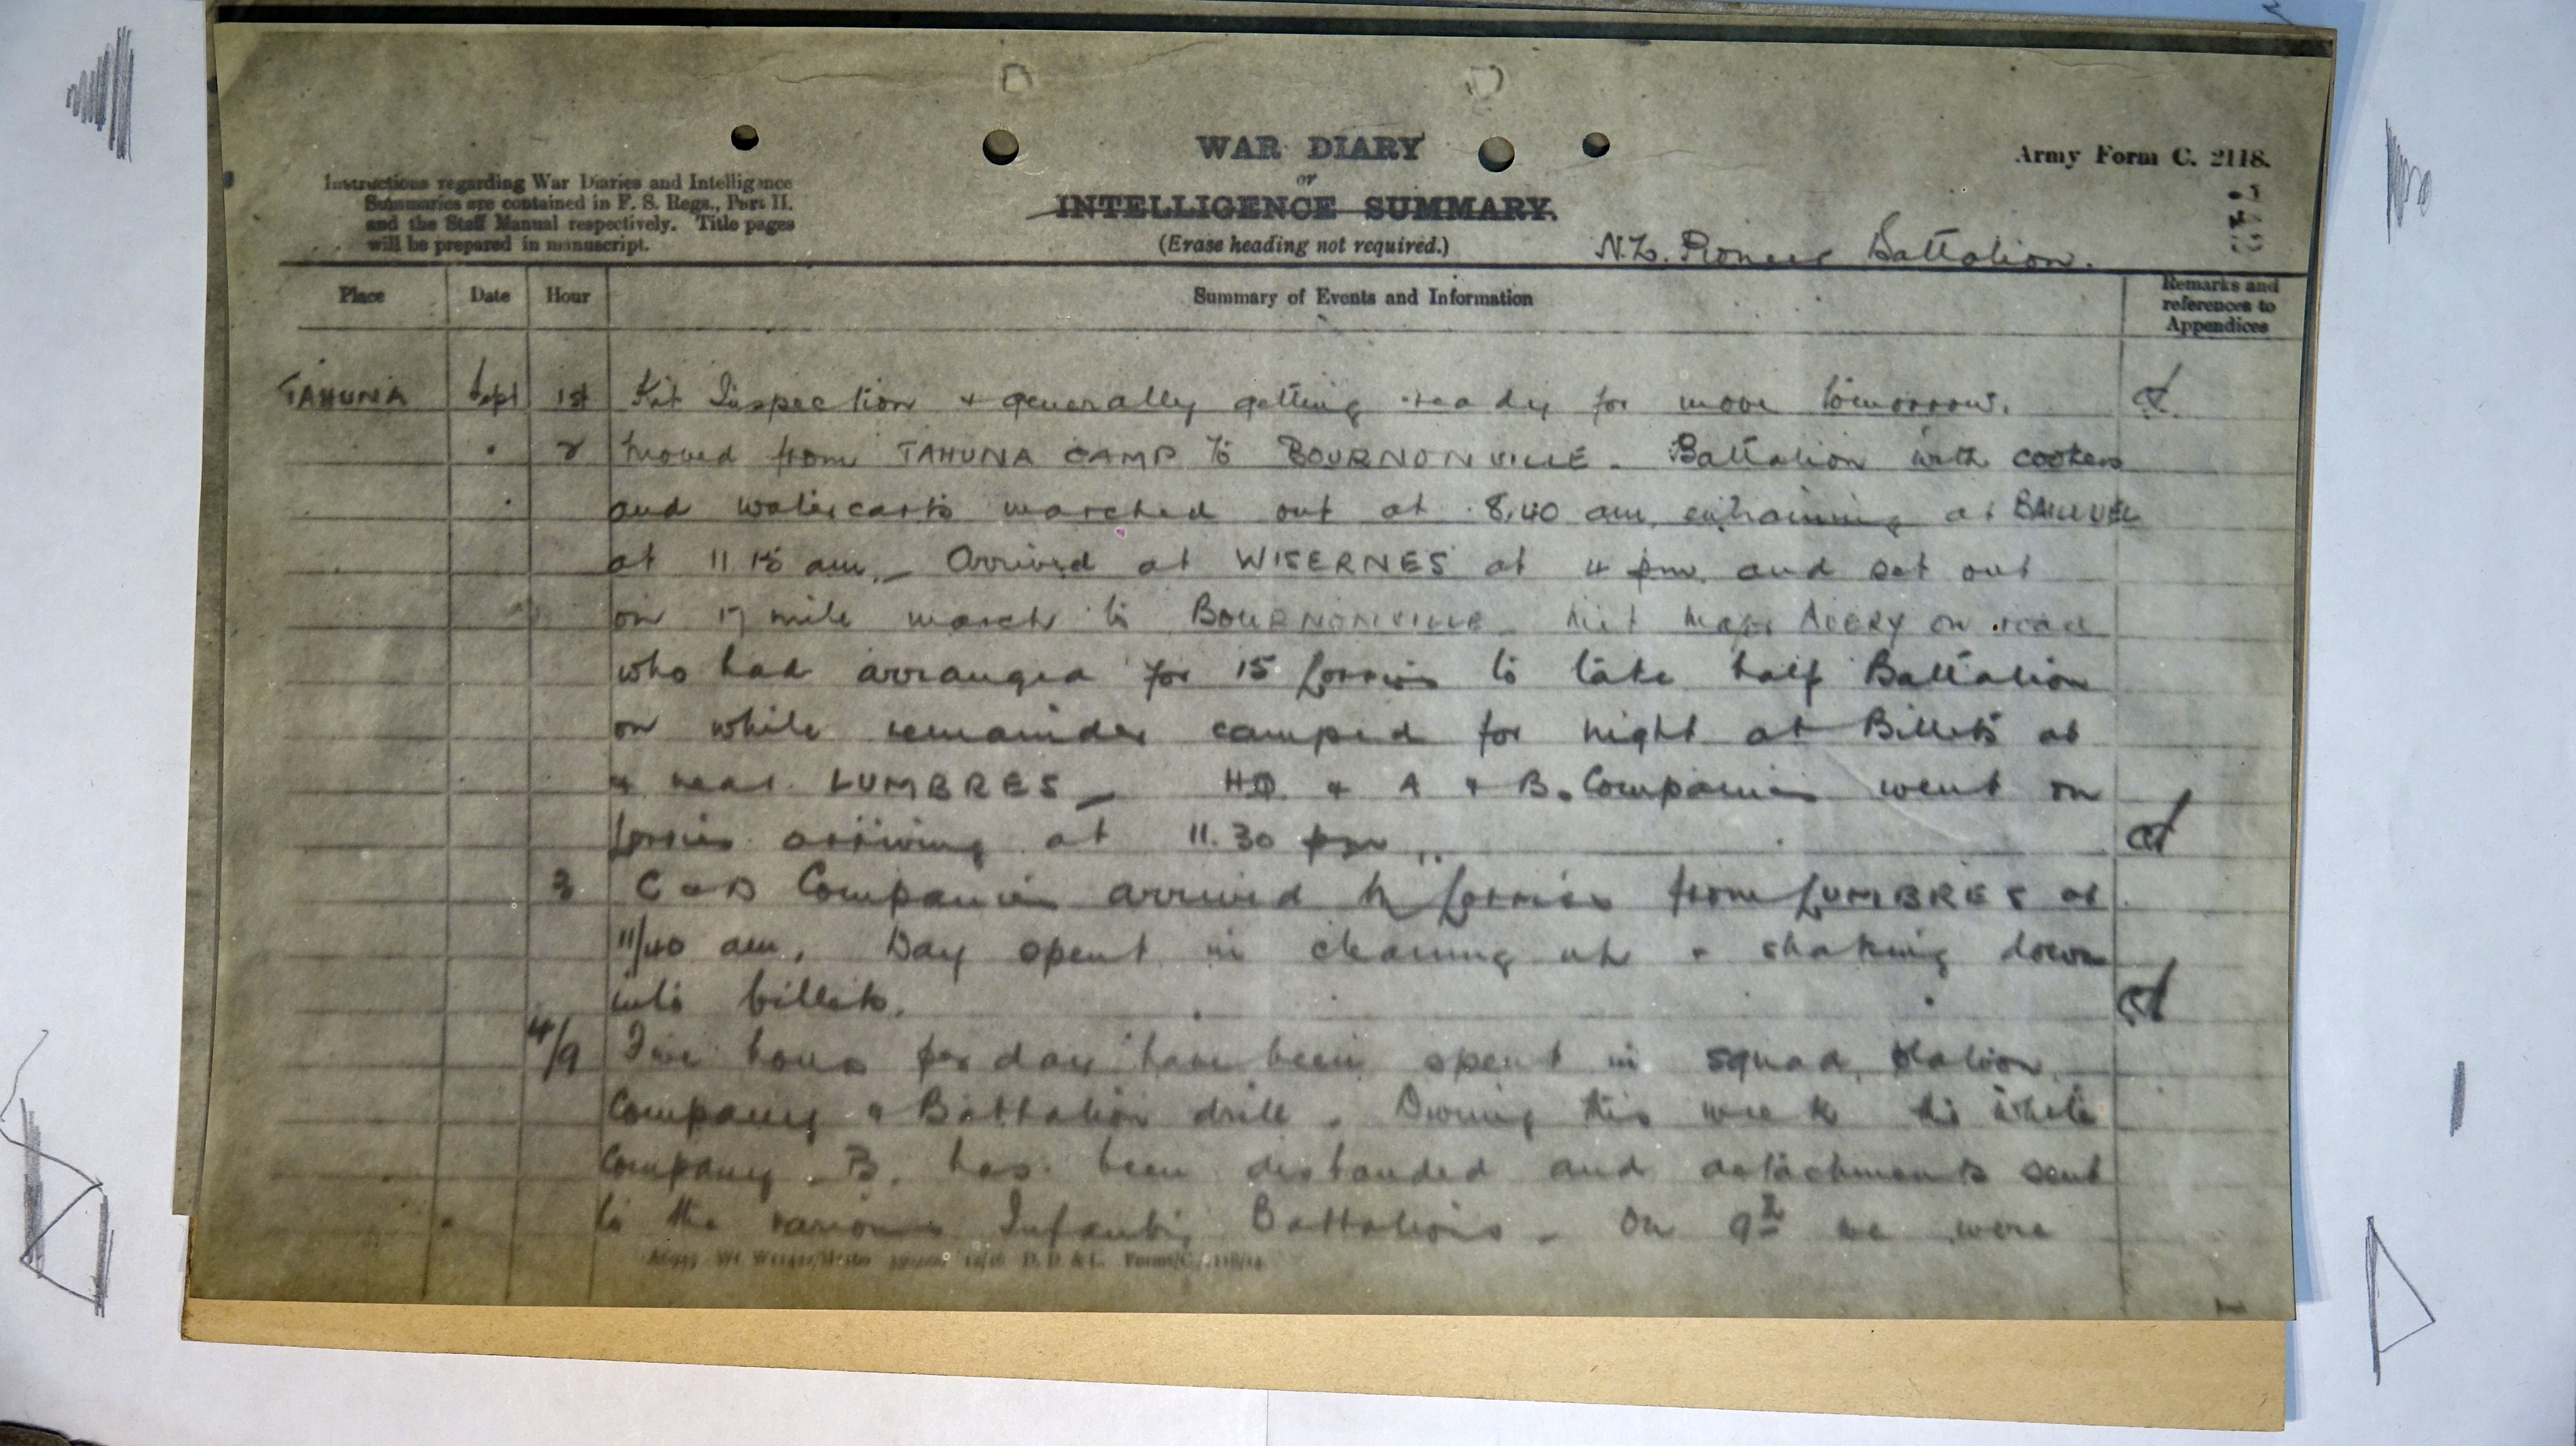 WAR DIARY
or
INTELLIGENCE SUMMARY.
(Erase heading not required.)
Army Form C. 2118.
Instructions regarding War Diaries and Intelligence
Summaries are contained in F. S. Regs., Part II.
and the Staff Manual respectively. Title pages
will be prepared in manuscript.
N.Z. Pioneer Battalion.
Place Date Hour Summary of Events and Information Remarks and references to Appendices
TAHUNA Sept 1st Kit Inspection & generally getting ready for move tomorrow.
2 Moved from TAHUNA CAMP to BOURNONVILLE. Battalion with cookers
and watercarts marched out at 8.40 am. entraining at
at 11.15 am. Arrived at WISERNES at 4 pm. and set out
on 17 mile march to BOURNONVILLE. Met Major AVERY on road
who had arranged for 15 lorries to take half Battalion
on while remainder camped for night at Billets at
& near LUMBRES _ HQ. & A & B. Companies went on
lorries arriving at 11.30 pm.
3 C & D Companies arrived by lorries from LUMBRES at
11/40 am. Day spent in cleaning up & shaking down
into billets.
4/9 Five hours per day have been spent in squad, Platoon,
Company & Battalion drill. During this week the whole
Company B. has been disbanded and detachments sent
to the various Infantry Battalions. On 9th we were